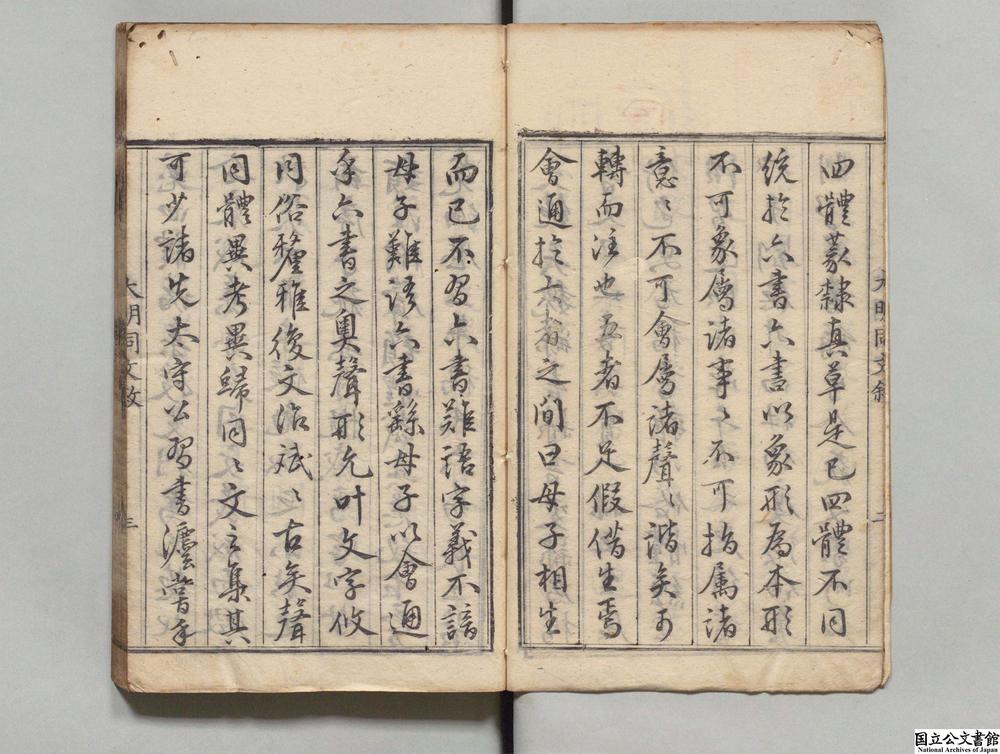 四體篆隸真草是已四體不同
統於六書六書以象形為本形
不可象屬諸事〻不可指属諸
意〻不可會屬諸聲〻諧矣
轉而注也五者不足假借生焉
會通於六者之間曰母子相生
大明同文敘
二
而已不習六書難語字義不諳
母子難語六書繇母子以會通
乎六書之奥聲形允叶文字攸
同俗釐雅復文治斌〻古矣聲
同體異考異歸同〻文之集其
可少諸先太守公習書
大明同文敘
三
国立公文書館
National Archives of Japan